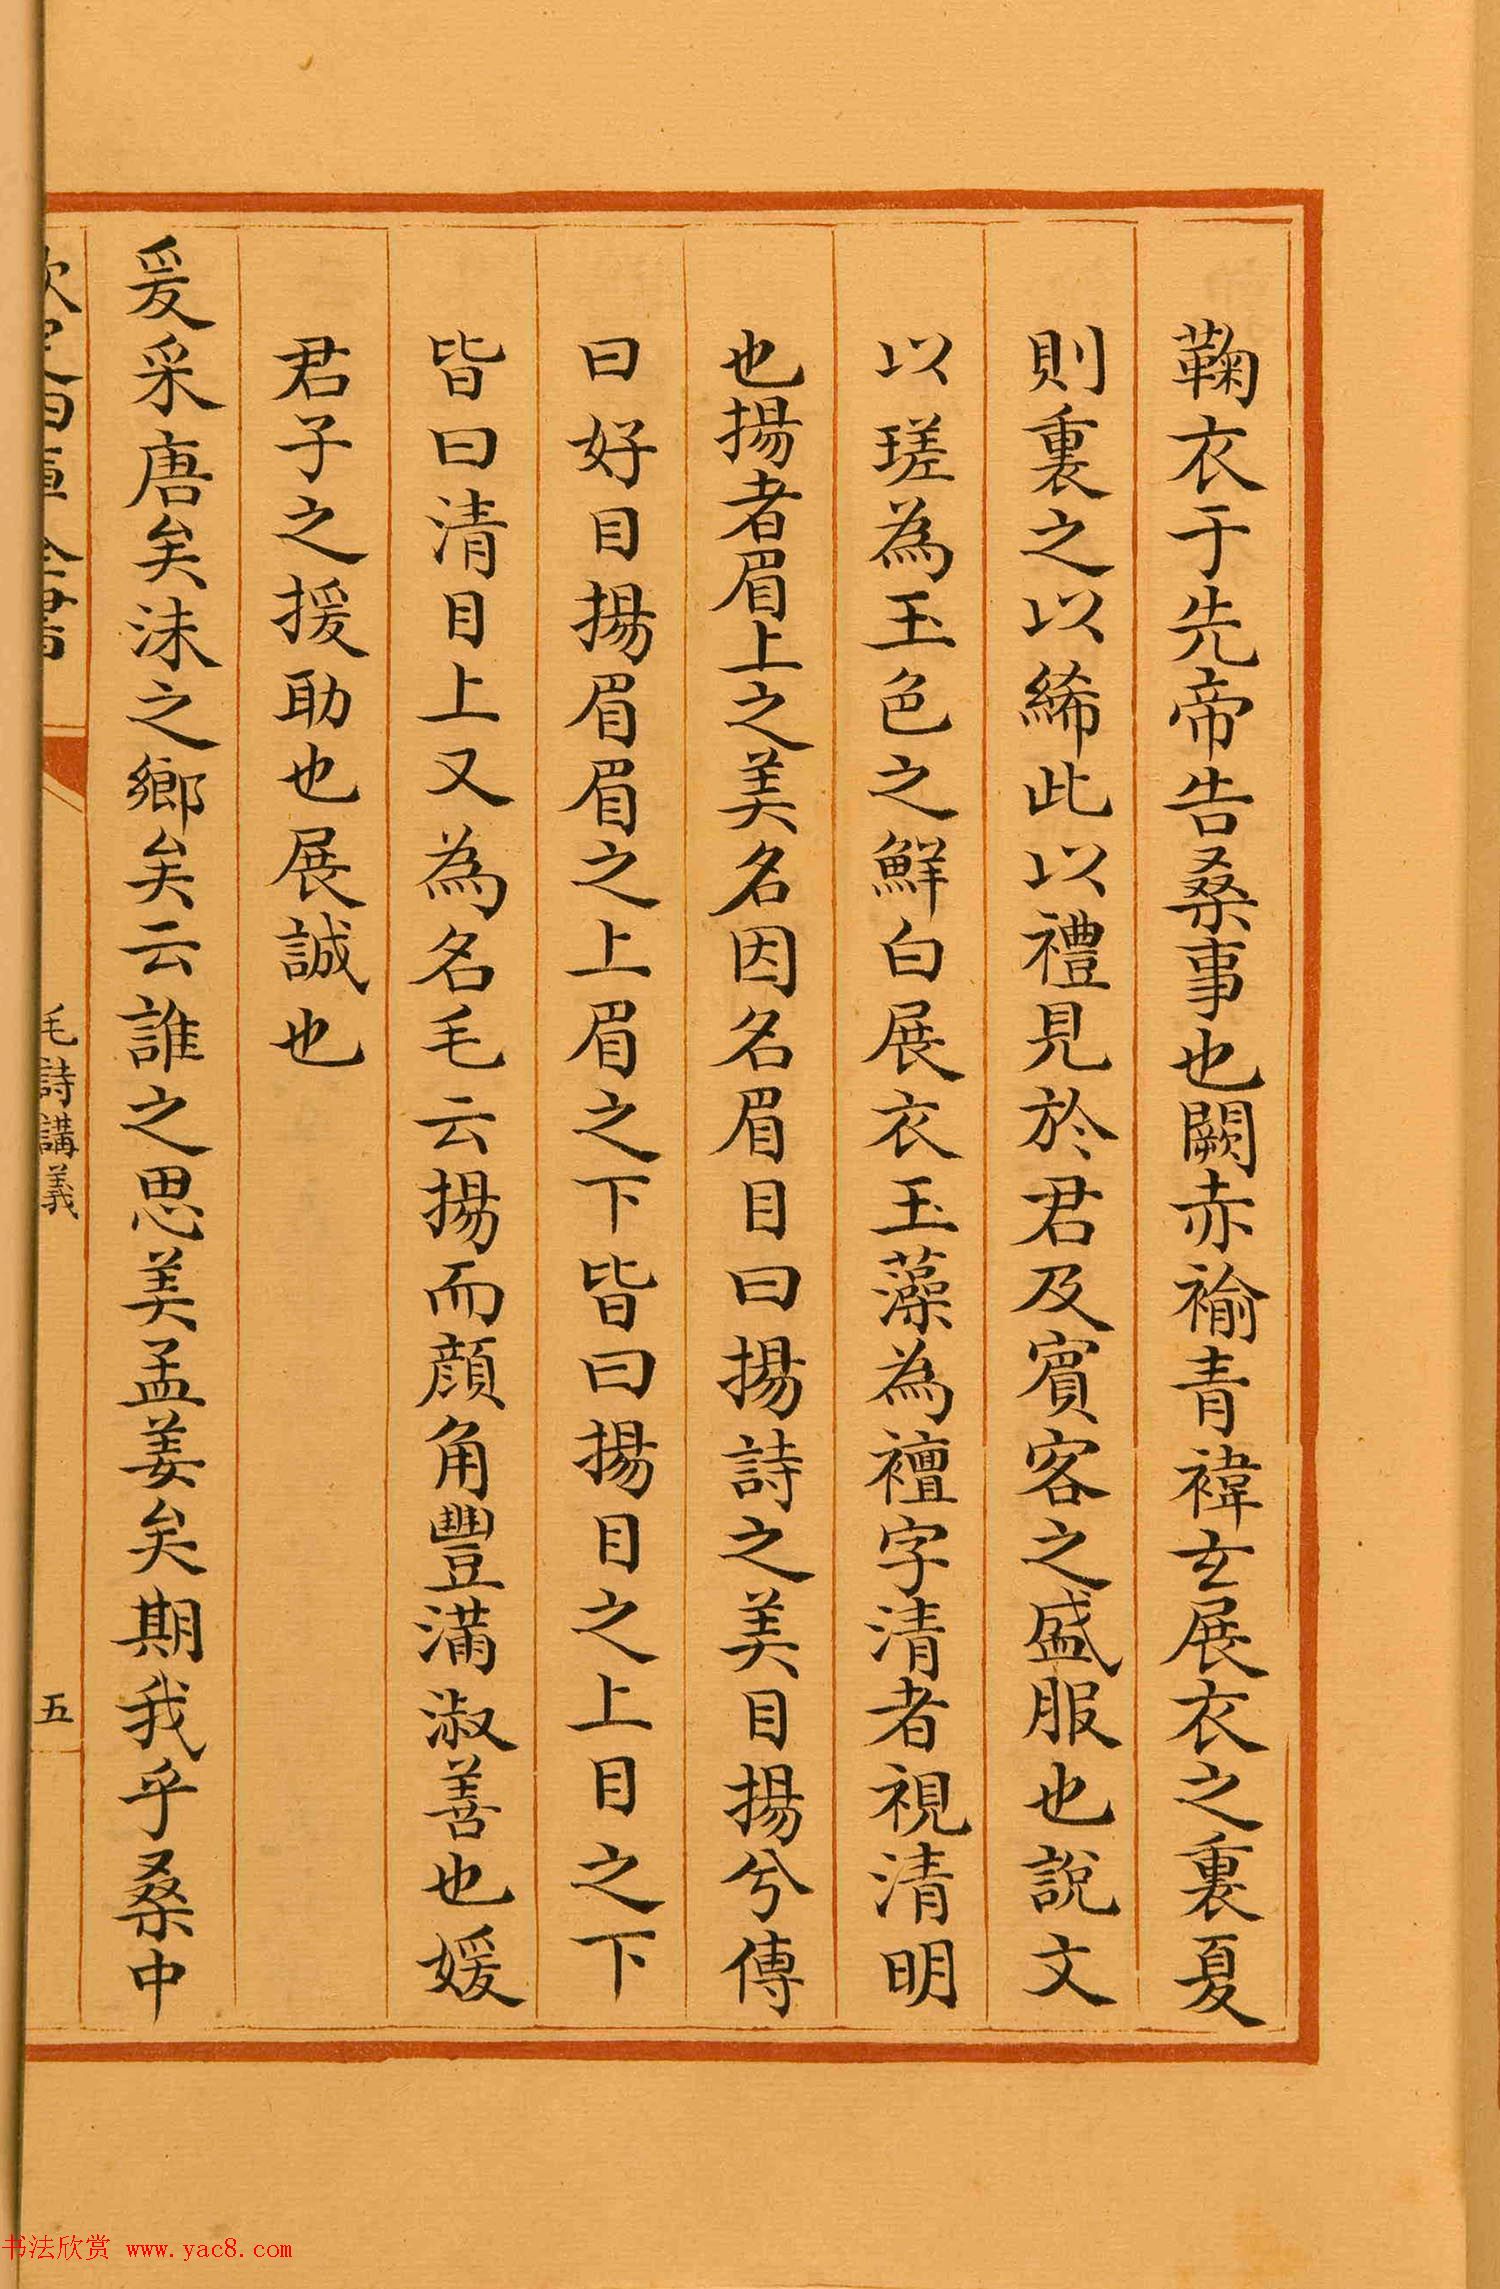 鞠衣于先帝告桑事也闕赤褕青褘玄展衣之裏夏
則裏之以絺此以禮見於君及賓客之盛服也説文
以瑳為玉色之鮮白展衣玉藻為襢字清者視清明
也揚者眉上之美名因名眉目曰揚詩之美目揚兮傳
曰好目揚眉眉之上眉之下皆曰揚目之上目之下
皆曰清目上又為名毛云揚而顔角豐滿淑善也媛
君子之援助也展誠也
爰采唐矣沬之鄉矣云誰之思美孟姜矣期我乎桑中
毛詩講義
五
书法欣赏 www.yac8.com